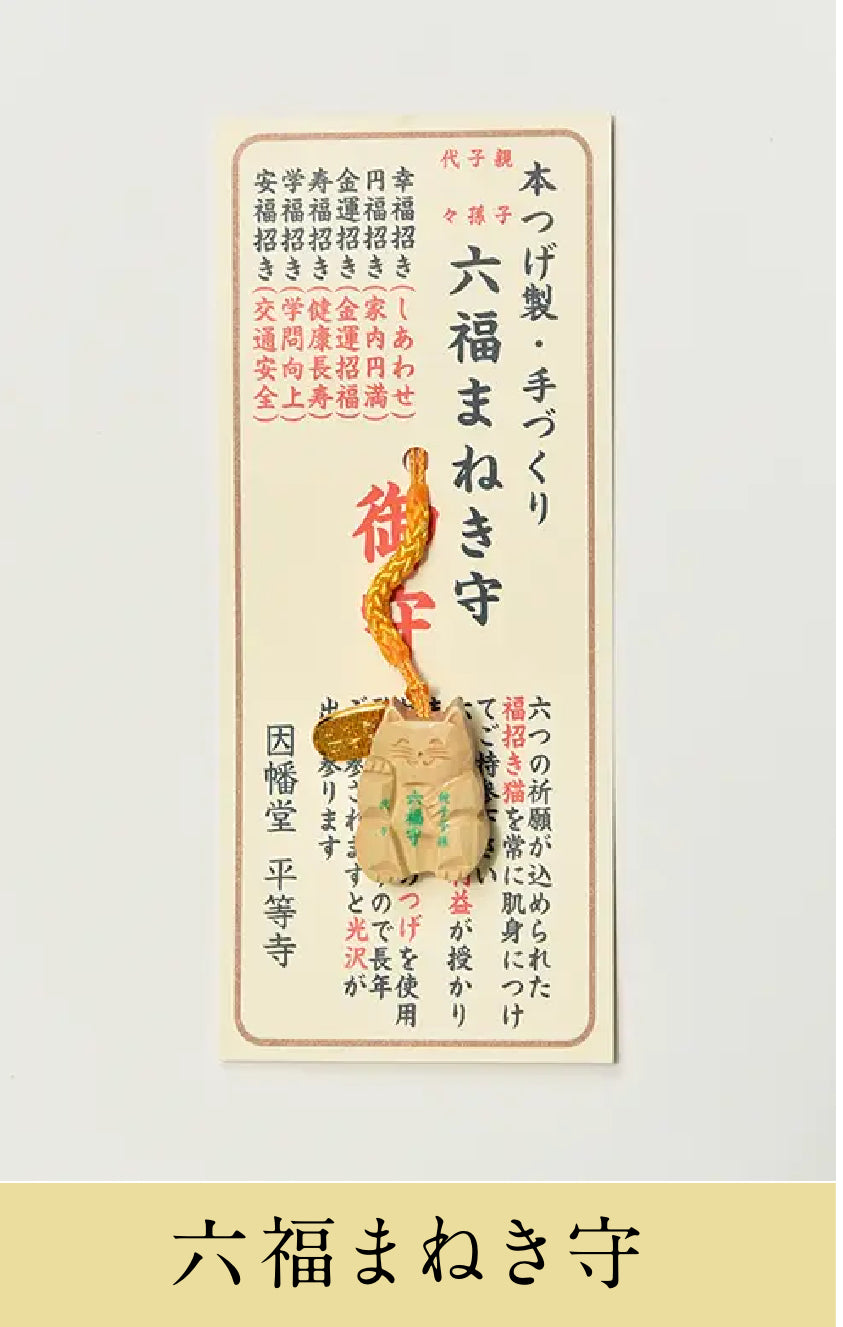 本つげ製・手づくり
親子代
子孫々
六福まねき守
幸福招き(しあわせ)
円福招き(家内円満)
金運招き(金運招福)
寿福招き(健康長寿)
学福招き(学問向上)
安福招き(交通安全)
御守
六つの祈願が込められた
福招き猫を常に肌身につけ
てご持参下さい
益が授かり
つげを使用
ので長年
参されますと光沢が
出参ります
因幡堂 平等寺
六福守
六福まねき守